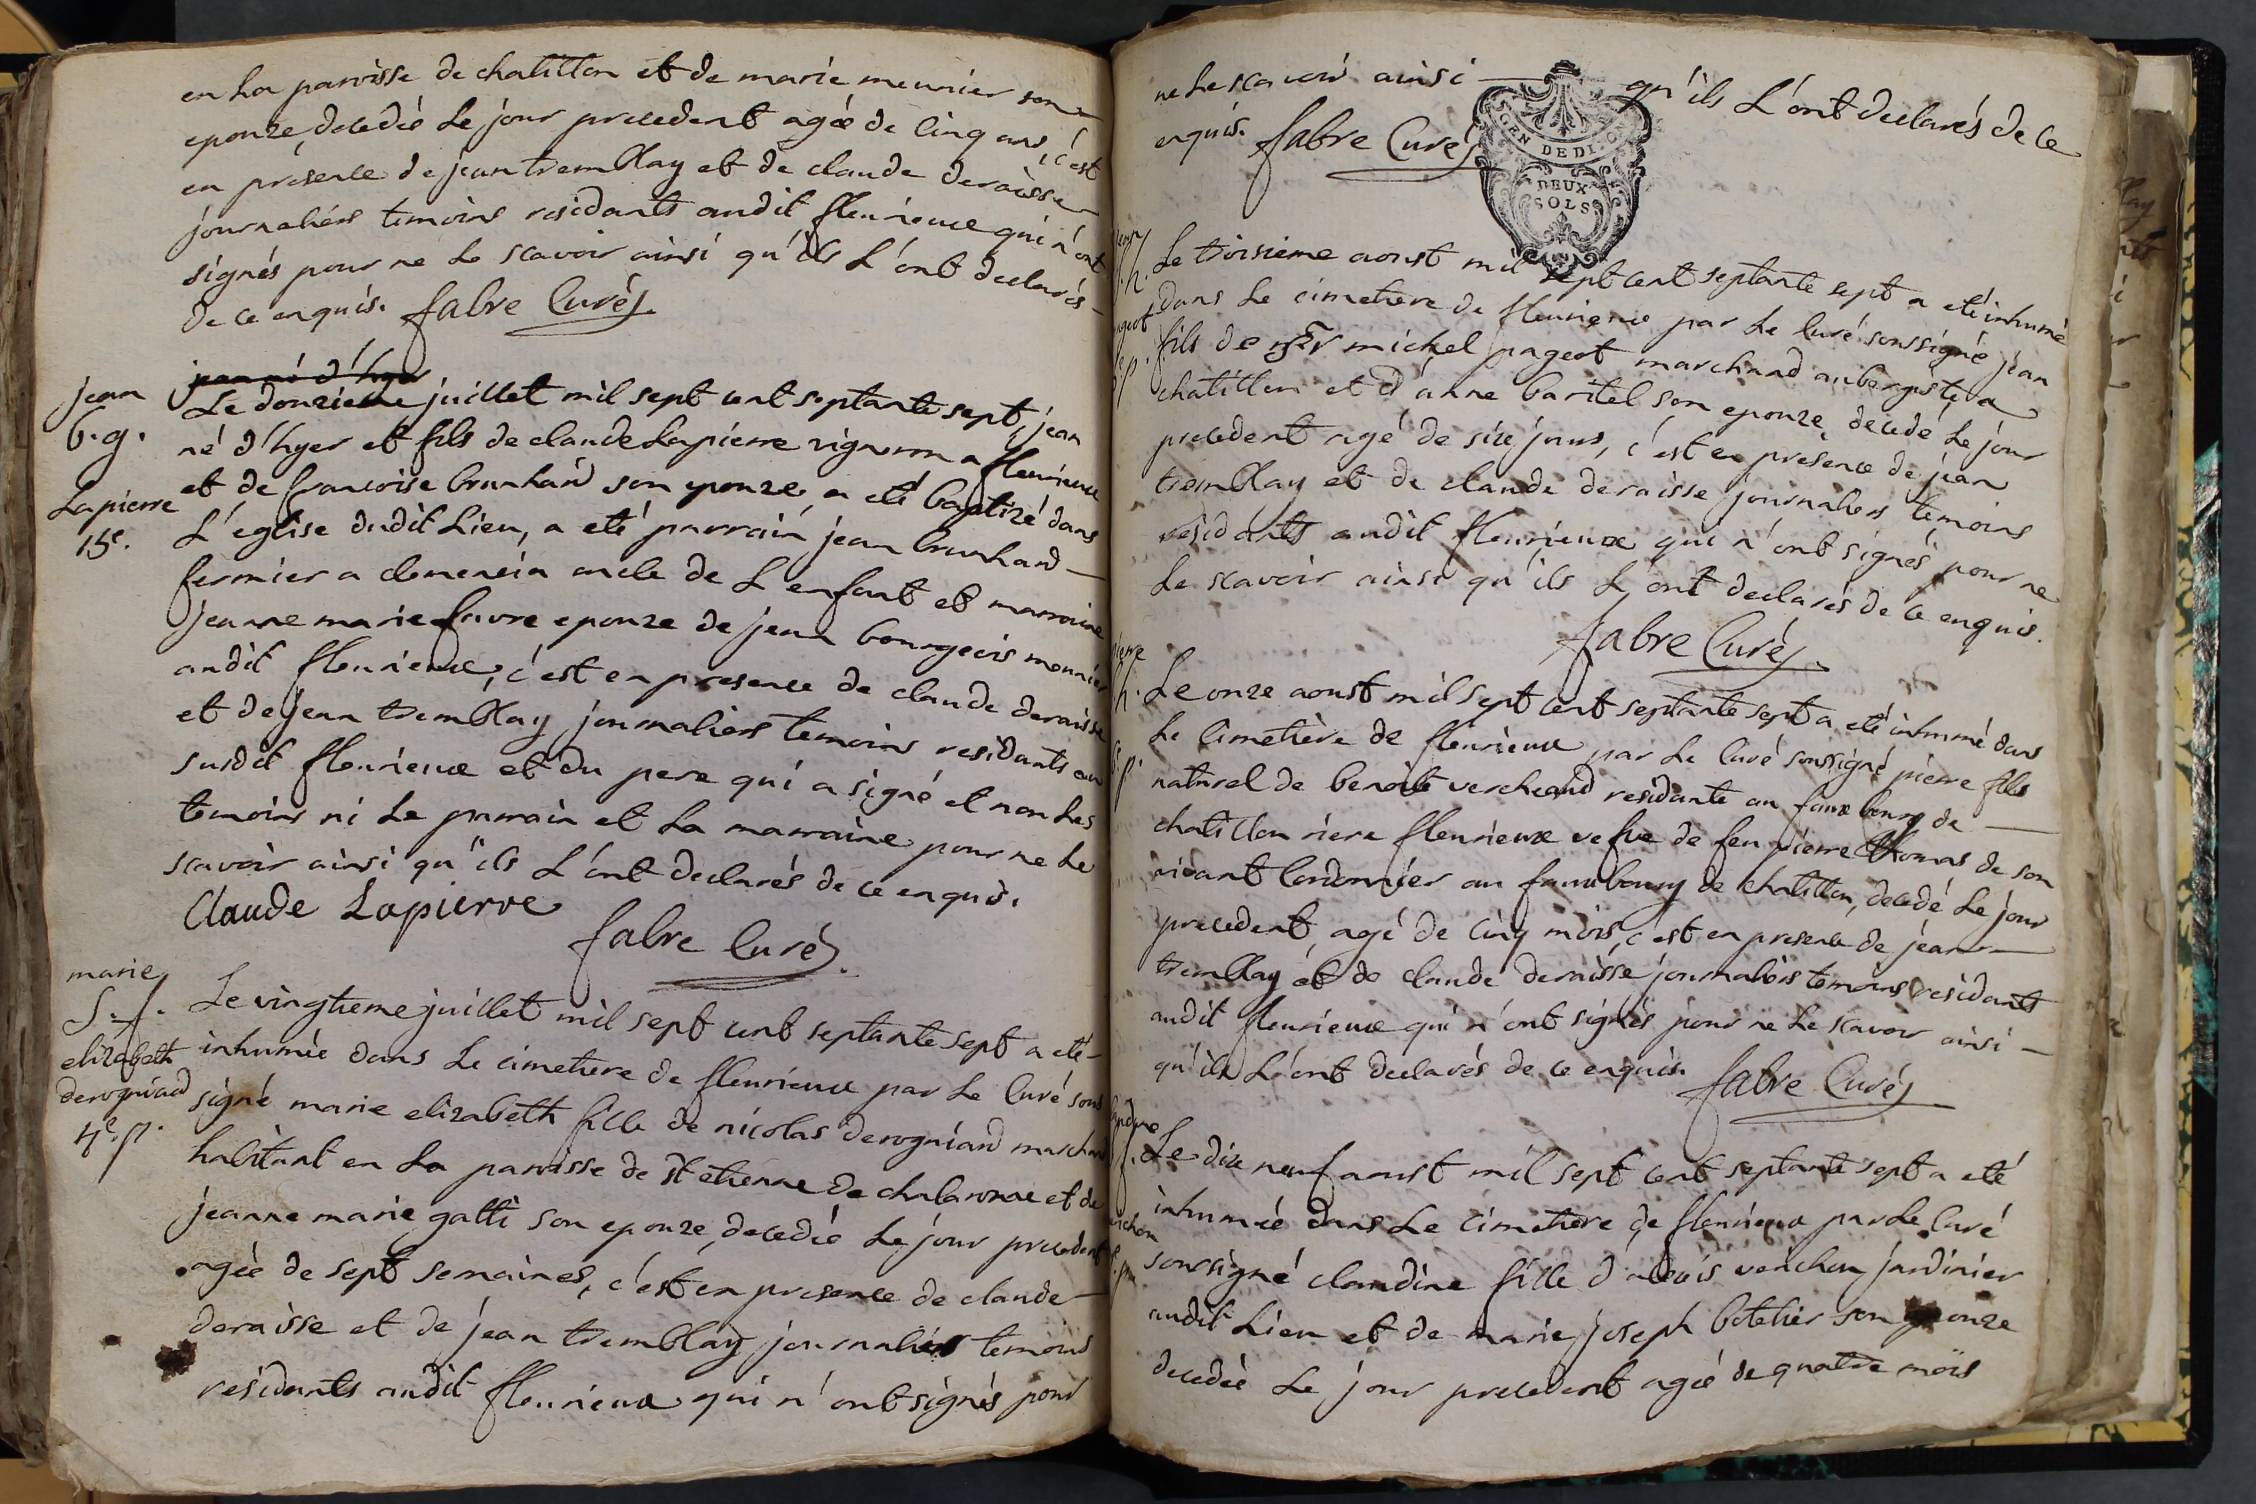 en la parroisse de chatillon et de marie meunier son
epouze, decedée Le jour precedent agée de cinq ans, c'est
en présence de jean tremblay et de claude deraisse
journaliers temoins residants audit fleurieux qui n'ont
signés pour ne Le scavoir ainsi qu'ils L'ont declarés
de ce enquis. fabre Curé
jean né d'hyer
Le douzieme juillet mil sept cent septante sept, jean
né d'hyer et fils de claude Lapierre vigneron a fleurieux
et de francoise brunhard son epouze, a eté baptizé dans
L'eglise dudit Lieu, a eté parrain jean brunhard
fermier a clemencia oncle de L'enfant et marraine
jeanne marie favre epouze de jean bourgeois meunier
audit fleurieux, c'est en presence de claude deraisse
et de jean tremblay journaliers temoins residants au
susdit fleurieux et du pere qui a signé et non Les
temoins ni Le parrain et La marraine pour ne Le
scavoir ainsi qu'ils L'ont declarés de ce enquis.
Claude Lapierre
fabre Curé
jean
b. g.
Lapierre
15e.
Le vingtieme juillet mil sept cent septante sept a eté
inhumée dans Le cimetiere de fleurieux par Le Curé sous
signé marie elizabeth fille de nicolas derogniard marchand
habitant en La parroisse de st etienne de chalaronne et de
jeanne marie gatti son epouze, decedée Le jour precedent
agée de sept semaines, c'est en presence de claude
deraisse et de jean tremblay journaliers temoins
residants audit fleurieux qui n'ont signés pour
marie
S. f.
elizabeth
derogniard
4e. p.
ne Le scavoir ainsi qu'ils L'ont declarés de ce
enquis. fabre Curé
GEN DE DIJO
DEUX
SOLS
Le troisieme aoust mil sept cent septante sept a eté inhumé
dans Le cimetiere de fleurieux par Le Curé soussigné jean
fils de michel pageot marchand aubergiste a
chatillon et d'anne baritel son epouze, decedé Le jour
precedent agé de six jours, c'est en presence de jean
tremblay et de claude deraisse journaliers temoins
residants audit fleurieux qui n'ont signés pour ne
Le scavoir ainsi qu'ils L'ont declarés de ce enquis.
fabre Curé
Le onze aoust mil sept cent septante sept a eté inhumé dans
Le cimetière de fleurieux par Le Curé soussigné pierre fils
naturel de benoite vercheard residante au faux bourg de
chatillon riere fleurieux vefve de feu pierre thomas de son
vivant Cordonnier au fauxbourg de chatillon, decedé Le jour
precedent, agé de cinq mois, c'est en presence de jean
tremblay et de claude deraisse journaliers temoins residants
audit fleurieux qui n'ont signés pour ne Le scavoir ainsi
qu'ils L'ont declarés de ce enquis. fabre Curé
Le dix neuf aoust mil sept cent septante sept a eté
inhumée dans Le cimetiere de fleurieux par Le Curé
soussigné claudine fille d'alexis verichon jardinier
audit Lieu et de marie joseph botelier son epouze
decedée Le jour precedent agée de quatre mois